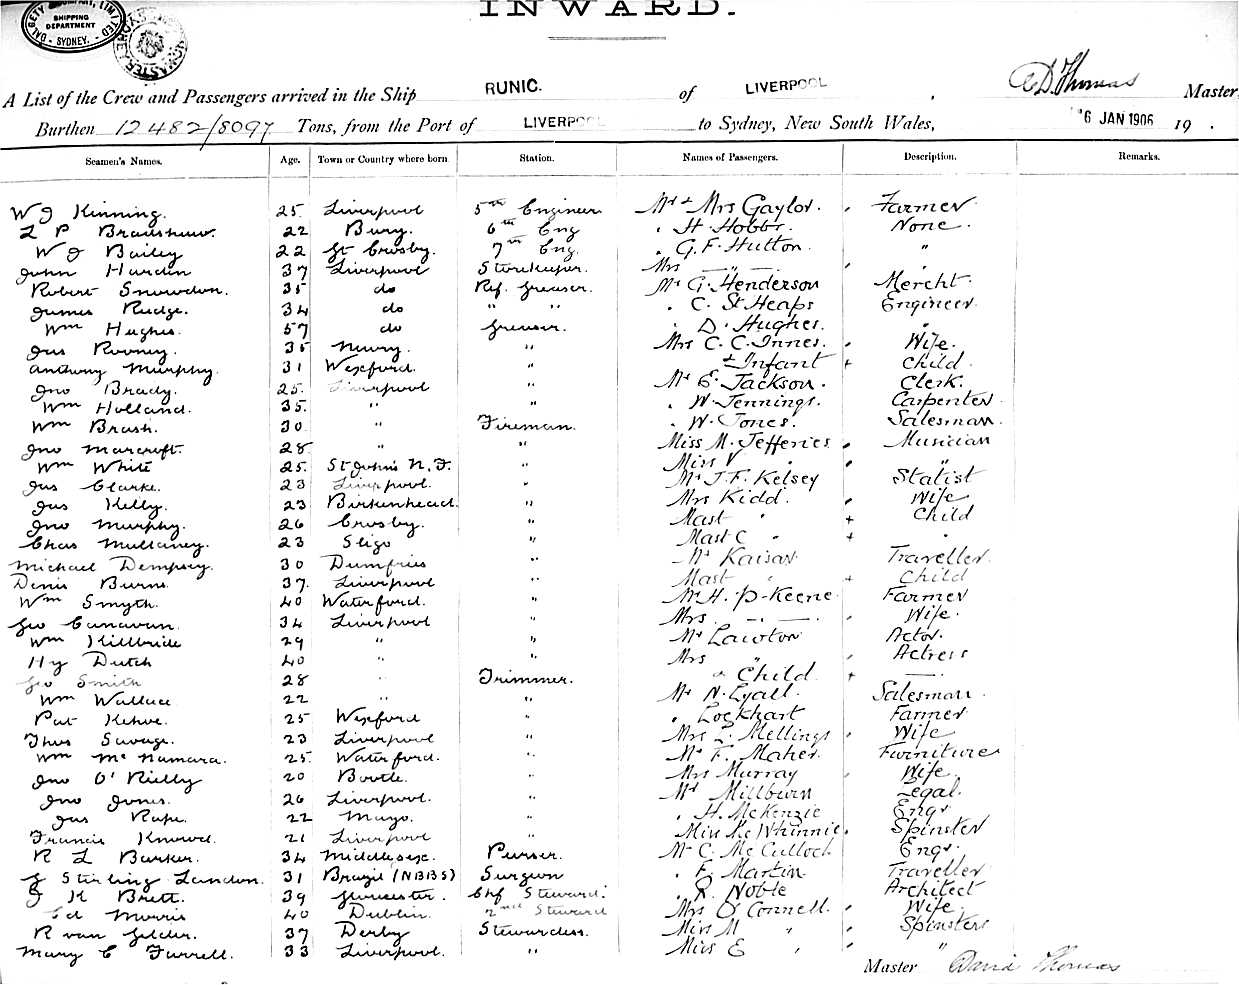 DALGETY & COMPANY, LIMITED
SHIPPING
DEPARTMENT
SYDNEY.
INWARD.
A List of the Crew and Passengers arrived in the Ship RUNIC. of LIVERPOOL, D. Thomas Master,
Burthen 12482/8097 Tons, from the Port of LIVERPOOL to Sydney, New South Wales, 6 JAN 1906 19 .
Seamen's Names. Age. Town or Country where born Station. Names of Passengers. Description. Remarks.
W J Kinning. 25. Liverpool 5th Engineer Mr + Mrs Gaylor. Farmer
L P Bradshaw. 22 Bury. 6th Eng " H. Hobbs. None.
W J Bailey 22 Gt Crosby. 7th Eng. " G. F. Hutton. "
John Harden 37 Liverpool Storekeeper. Mrs — " — "
Robert Snowdon. 35 do Ref. Greaser. Mr G. Henderson Mercht.
James Rudge. 34 do " " " C. St Heaps Engineer
Wm Hughes. 57 do Greaser. " D. Hughes. "
Jas Rooney. 35 Newry. " Mrs C. C. Innes. Wife.
Anthony Murphy. 31 Wexford. " + Infant + Child
Jno Brady. 25. Liverpool " Mr E. Jackson. Clerk.
Wm Holland. 35. " " " W. Jennings. Carpenter
Wm Brash. 30 " Fireman. " W. Jones. Salesman.
Jno Marcroft. 28 " " Miss M. Jefferies Musician
Wm White 25. St John's N. F. " Miss V " "
Jas Clarke. 23 Liverpool. " Mr J. F. Kelsey Statist
Jas Kelly. 23 Birkenhead. " Mrs Kidd. Wife
Jno Murphy. 26 Crosby. " Mast " + Child
Chas Mullaney. 23 Sligo " Mast C " + "
Michael Dempsey. 30 Dumfries " Mr Kaisar Traveller
Denis Burns. 37. Liverpool " Mast " + Child
Wm Smyth. 40 Waterford. " Mr H. P. Keene Farmer
Geo Canavan. 34 Liverpool " Mrs. — " — Wife.
Wm Killbride 29 " " Mr Lawton Actor.
Hy Dutch 40 " " Mrs " Actress
Geo Smith 28 " Trimmer. " Child + —
Wm Wallace 22 " " Mr N. Lyall. Salesman.
Pat Kehoe. 25 Wexford " " Lockhart Farmer
Thos Savage. 23 Liverpool " Mrs L. Mellings Wife
Wm McNamara. 25. Waterford. " Mr F. Maher. Furniture
Jno O'Rielly 20 Bootle. " Mrs Murray Wife.
Jno Jones. 26 Liverpool. " Mr Millburn Legal.
Jas Rape. 22 Mayo. " " H. McKenzie Engr
Francis 21 Liverpool " Miss McWhinnie. Spinster
R L Barker. 34 Middlesex. Purser. Mr C. McCulloch Engr.
J Stirling Landon. 31 Brazil (NBBS) Surgeon " F. Martin Traveller
J K Brett. 39 Gloucester. Chf Steward. " R. Noble Architect
Ed Morris 40 Dublin. 2nd Steward Mrs O'Connell. Wife.
R van Gelder. 37 Derby Stewardess. Miss M " Spinster
Mary C Farrell. 33 Liverpool. " Miss E " "
Master David Thomas